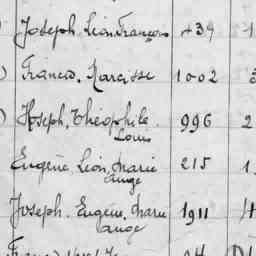 Joseph, Léon, François 439 1
) Francis, Narcisse 1002
) Hoseph, Théophile 996 2
Louis
Eugène, Léon, Marie 215 1
ange
Joseph. Eugène, Marie 1911
ange